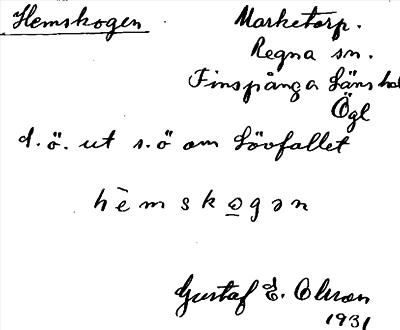 Hemskogen
Marketorp.
Regna sn.
Finspånga Läns hd
Ögl
d.ö. ut s.ö om Lövfallet
hèmskogən
Gustaf E. Olsson
1931